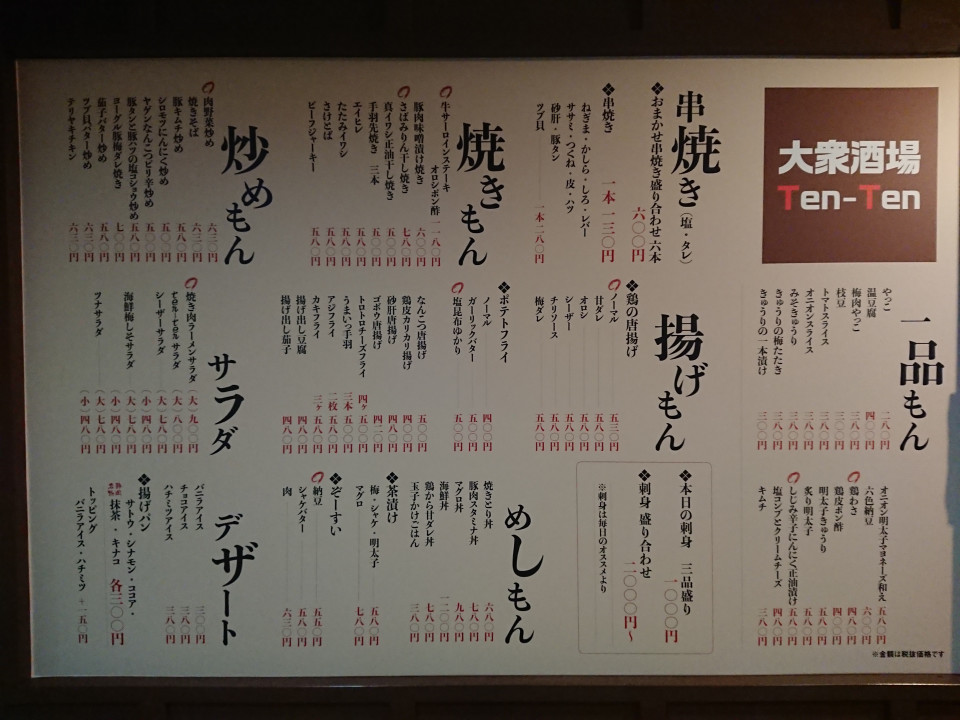 大衆酒場
Ten-Ten
串焼き（塩・タレ）
❖おまかせ串焼き盛り合わせ六本
六〇〇円
❖串焼き
一本 一三〇円
ねぎま・かしら・しろ・レバー
ササミ・つくね・皮・ハツ
砂肝・豚タン
ツブ貝
一本二八〇円
焼きもん
牛サーロインステーキ
オロシポン酢 一一八〇円
豚肉味噌漬け焼き 六〇〇円
さばみりん干し焼き 七八〇円
真イワシ正油干し焼き 五〇〇円
手羽先焼き 三本 五八〇円
エイヒレ 五八〇円
たたみイワシ 五八〇円
さけとば 五八〇円
ビーフジャーキー 五八〇円
炒めもん
肉野菜炒め 六三〇円
焼きそば 六三〇円
豚キムチ炒め 五八〇円
シロモツにんにく炒め 五〇〇円
ヤゲンなんこつピリ辛炒め 五〇〇円
豚タンと豚ハツの塩コショウ炒め 五八〇円
ヨーグル豚梅ダレ焼き 七〇〇円
茄子バター炒め 五八〇円
ツブ貝バター炒め 六三〇円
テリヤキチキン 六三〇円
一品もん
やっこ 二八〇円
温豆腐 四〇〇円
梅肉やっこ 三三〇円
枝豆 三〇〇円
トマトスライス 三八〇円
オニオンスライス 三三〇円
みそきゅうり 三八〇円
きゅうりの梅たたき 三八〇円
きゅうりの一本漬け 三〇〇円
揚げもん
❖鶏の唐揚げ
ノーマル 五三〇円
甘ダレ 五八〇円
オロシ 五八〇円
シーザー 五八〇円
チリソース 五八〇円
梅ダレ 五八〇円
❖ポテトフライ
ノーマル 四〇〇円
ガーリックバター 五〇〇円
塩昆布ゆかり 五〇〇円
なんこつ唐揚げ 五〇〇円
鶏皮カリカリ揚げ 四〇〇円
砂肝唐揚げ 四八〇円
ゴボウ唐揚げ 四三〇円
トロトロチーズフライ 四ヶ 五〇〇円
うまいっ手羽 三本 五八〇円
アジフライ 二枚 五八〇円
カキフライ 三ヶ 五八〇円
揚げ出し豆腐 四八〇円
揚げ出し茄子 四八〇円
サラダ
焼き肉ラーメンサラダ （大）九〇〇円
ten-tenサラダ （大）八〇〇円
シーザーサラダ （大）七八〇円
（小）四八〇円
海鮮梅しそサラダ （大）七八〇円
（小）四八〇円
ツナサラダ （大）七八〇円
（小）四八〇円
オニオン明太子マヨネーズ和え 五八〇円
六色納豆 六〇〇円
鶏わさ 四八〇円
鶏皮ポン酢 四八〇円
明太子きゅうり 五八〇円
炙り明太子 五八〇円
しじみ辛子にんにく正油漬け 五八〇円
塩コンブとクリームチーズ 四八〇円
キムチ 三八〇円
❖本日の刺身 三品盛り
一〇〇〇円
❖刺身 盛り合わせ
二〇〇〇円～
※刺身は毎日のオススメより
めしもん
焼きとり丼 六八〇円
豚肉スタミナ丼 七八〇円
マグロ丼 九八〇円
海鮮丼 一二〇〇円
鶏から甘ダレ丼 七八〇円
玉子かけごはん 三八〇円
❖茶漬け
梅・シャケ・明太子 五八〇円
マグロ 七八〇円
❖ぞーすい
納豆 五五〇円
シャケバター 五八〇円
肉 六三〇円
デザート
バニラアイス 三〇〇円
チョコアイス 三八〇円
ハチミツアイス 三八〇円
❖揚げパン
サトウ・シナモン・ココア・
抹茶・キナコ 各三〇〇円
トッピング
バニラアイス・ハチミツ 一五〇円
※金額は税抜価格です